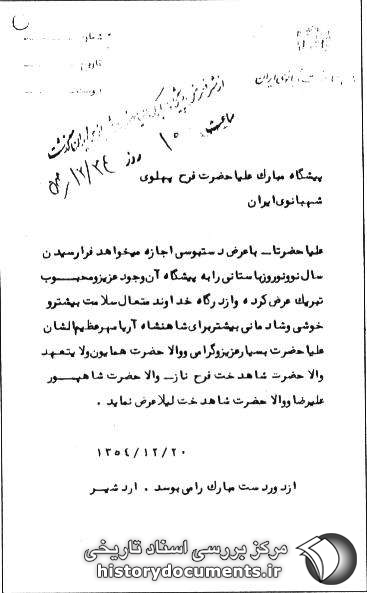 شماره
تاریخ
پیوست
ساعت ۱۰ روز ۱۲/۲۴
پیشگاه مبارك علیاحضرت فرح پهلوی
شهبانوی ایران
علیاحضرتا ــ با عرض دستبوسی اجازه میخواهد فرا رسیدن
سال نو و نوروز باستانی را به پیشگاه آن وجود عزیز و محبوب
تبریك عرض کرده و از درگاه خداوند متعال سلامت بیشتر و
خوشی و شادمانی بیشتر برای شاهنشاه آریامهر عظیم الشان
علیاحضرت بسیار عزیز و گرامی و والاحضرت همایون ولایتعهد
والاحضرت شاهدخت فرح ناز ــ والاحضرت شاهپور
علیرضا و والاحضرت شاهدخت لیلا عرض نماید .
۱۳۵۴/۱۲/۲۰
از دور دست مبارك را می بوسد . اردشیر
مرکز بررسی اسناد تاریخی
historydocuments.ir